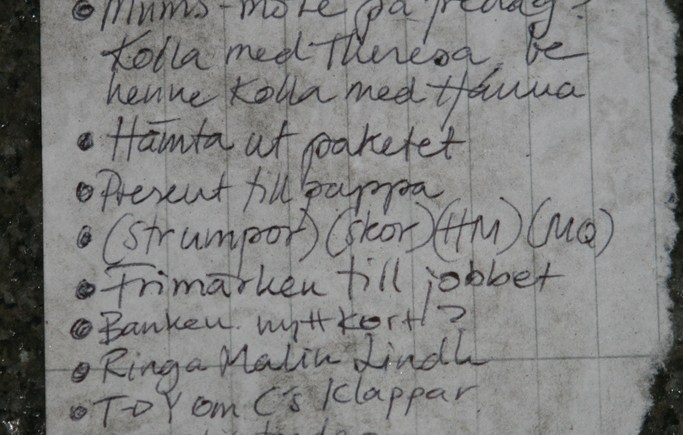 Mums-möte på fredag?
Kolla med Theresa, be
henne Kolla med Hanna
Hämta ut paketet
Present till pappa
(Strumpor) (skor) (HM) (MQ)
Frimärken till jobbet
Banken. nytt kort?
Ringa Malin Lindh
om C's klappar